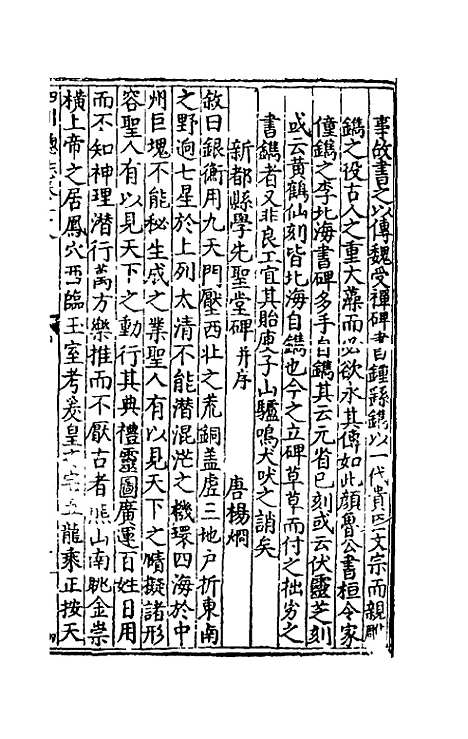 事故書之以傳魏受禪碑書自鍾繇鐫以一代貴臣文宗而親
鐫之役古人之重大藻而必欲永其傳如此顏魯公書桓令家
僮鐫之李北海書碑多手自鐫其云元省己刻或云伏靈芝刻
或云黃鶴仙刻皆北海自鐫也今之立碑草草而付之拙劣之
書鐫者又非良工宜其貽庾子山驢鳴犬吠之誚矣
新都縣學先聖堂碑并序 唐楊炯
敘曰銀衡用九天門壓西北之荒銅蓋虛三地戶折東南
之野迥七星於上列太清不能潛混茫之機環四海於中
州巨塊不能秘生成之業聖人有以見天下之賾擬諸形
容聖人有以見天下之動行其典禮靈圖廣運百姓日用
而不知神理潛行萬方樂推而不厭古者熊山南眺金崇
橫上帝之居鳳穴西臨玉室考炎皇之宗五龍乘正按天